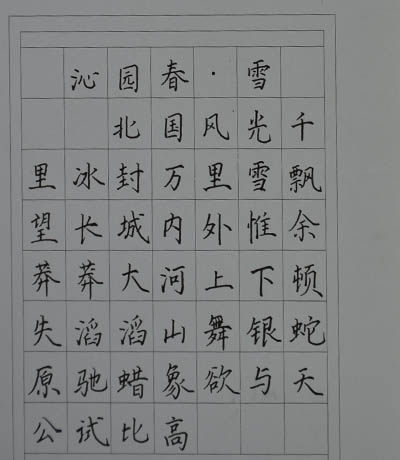 沁园春·雪
北国风光千
里冰封万里雪飘
望长城内外惟余
莽莽大河上下顿
失滔滔山舞银蛇
原驰蜡象欲与天
公试比高